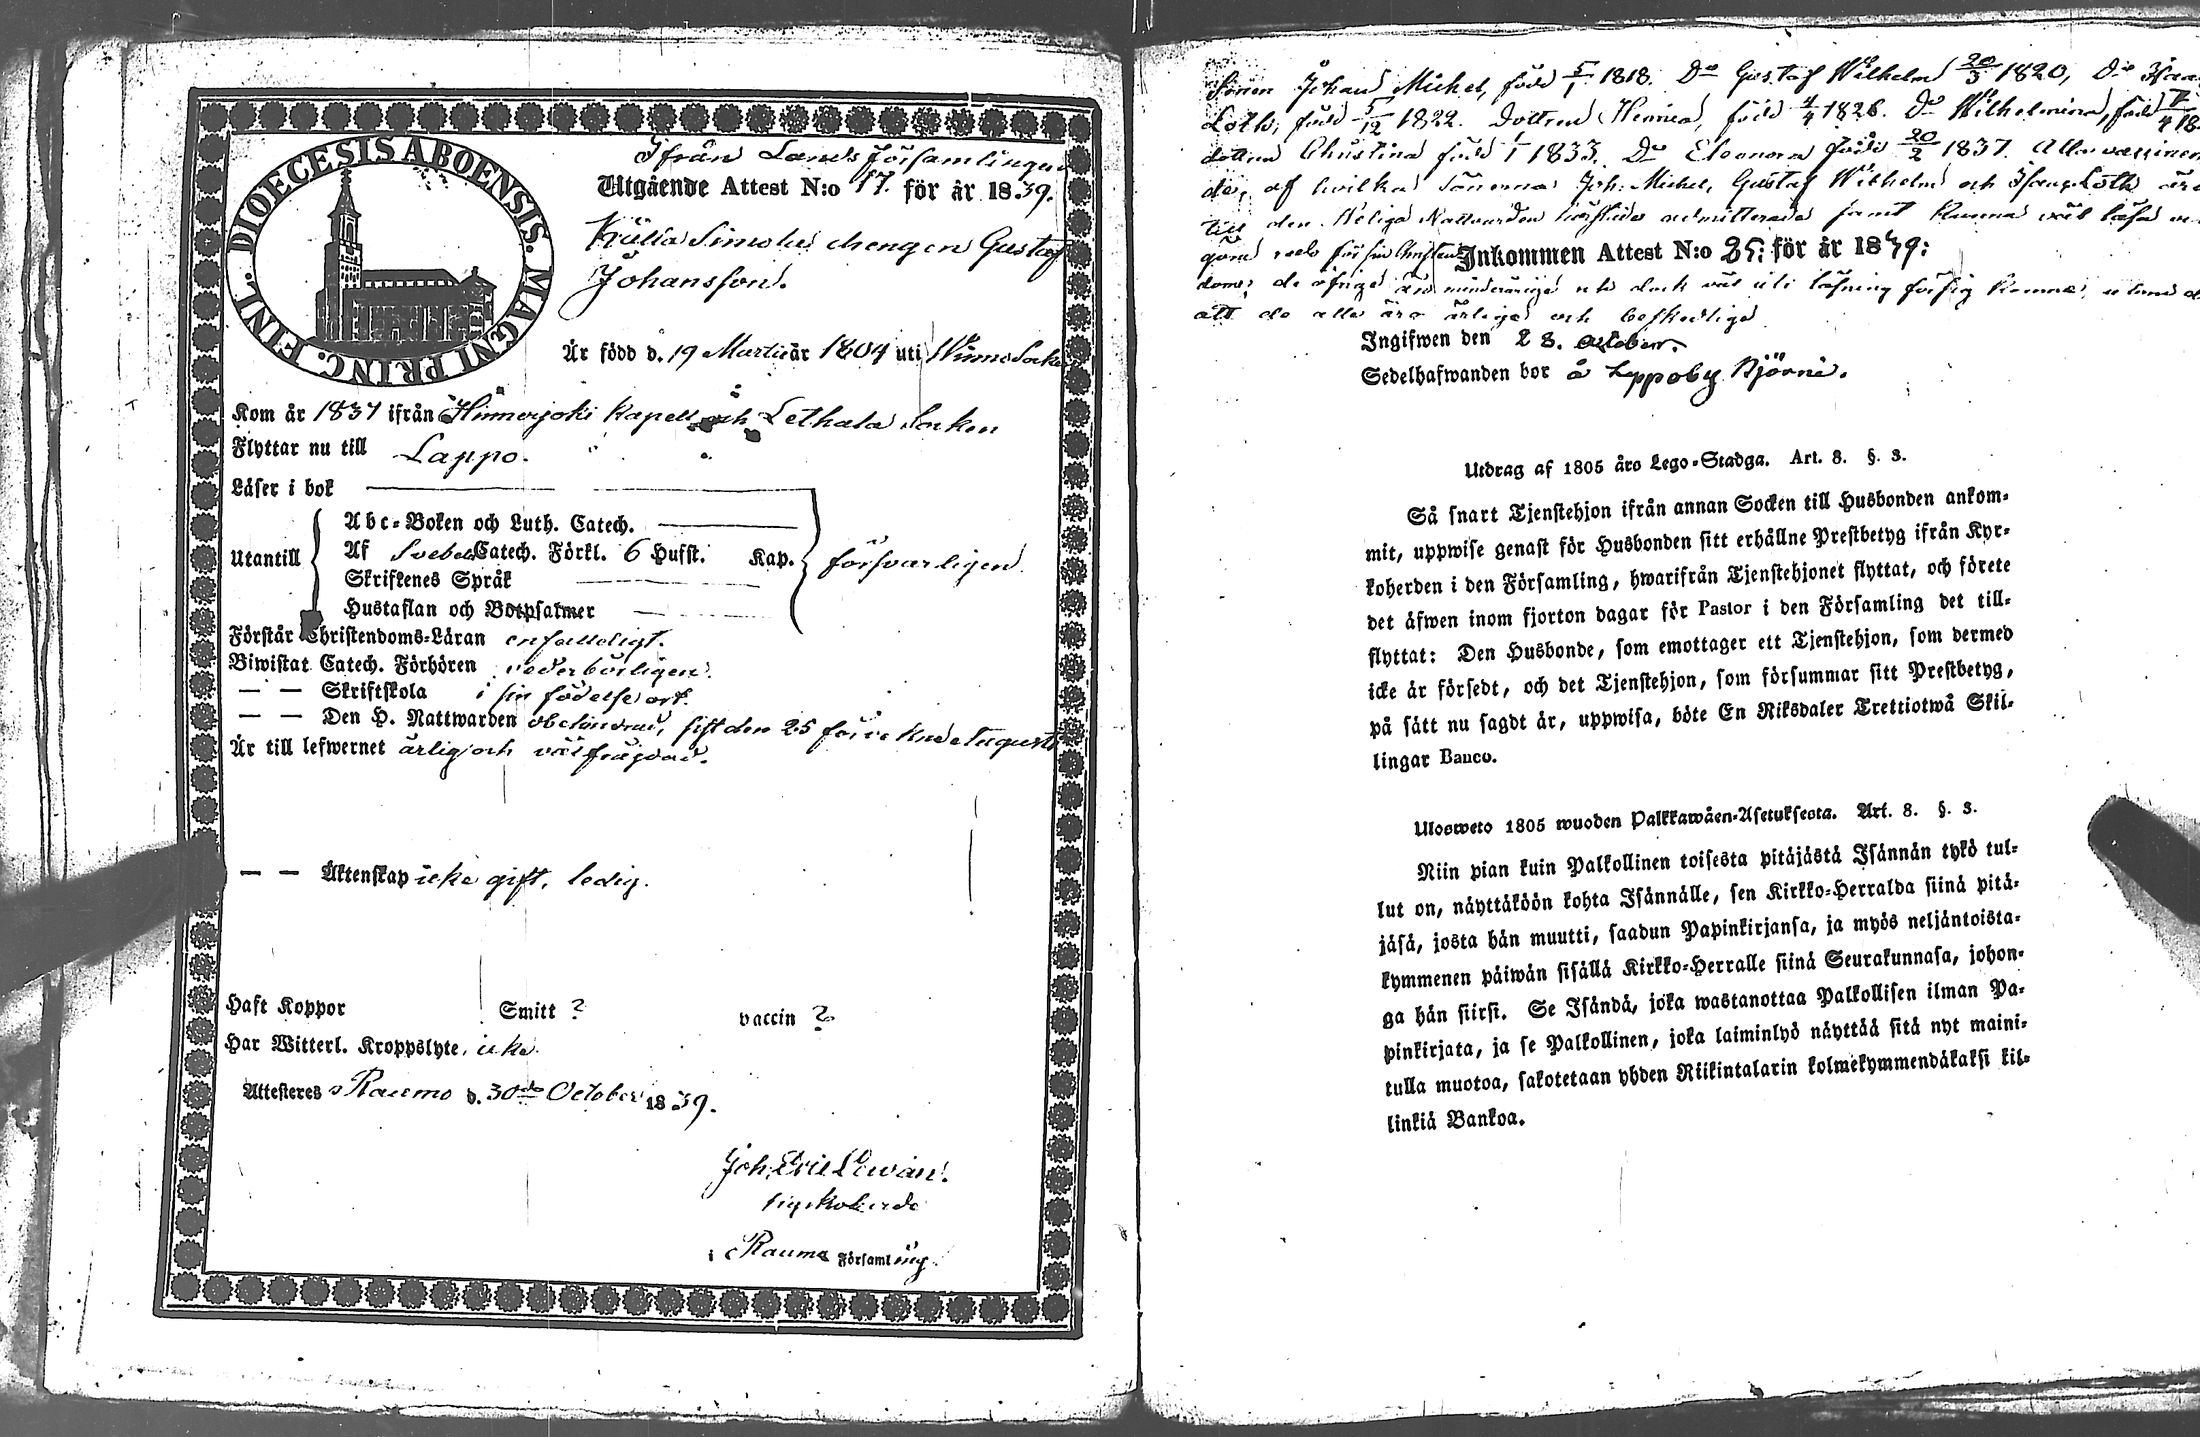 DIOECESIS ABOENSIS. MAGNI PRINC. FINL.
Ifrån Lands församlingen
Utgående Attest N:o 17. för år 1839.
Drengen Gustaf
Johansson.
Är född d. 19 Martii år 1804 uti Socken
Kom år 1837 ifrån Hinnerjoki Kapell och Lethala Socken
Flyttar nu till Lappo.
Läser i bok
Utantill
Abc-Boken och Luth. Catech.
Af Svebel. Catech. Förkl. 6 Hufst. Kap.
försvarligen.
Skriftenes Språk
Hustaflan och Botpsalmer
Förstår Christendoms-Läran enfalldeligt.
Biwistat Catech. Förhören vederbörligen.
— — Skriftskola i sin födelse ort.
— — Den H. Nattwarden obehindrad, sist den 25 Augusti
Är till lefwernet ärlig och välfrägdad.
— — Äktenskap icke gift, ledig.
Haft Koppor Smitt ? vaccin ?
Har Witterl. Kroppslyte, icke.
Attesteres Raumo d. 30de October 1839.
Joh. Eric Lewan.
Kyrkoherde
i Raumo Församling.
Sonen Johan Michel, född 5/1 1818. Do Gustaf Wilhelm 20/3 1820, Do Isaac
Loth, född 5/12 1822. Dottren född 4/4 1826. Do Wilhelmina, född 7/4 18
dottren Christina född 1833. Do Eleonora född 20/2 1837. Alla vaccinera
de, af hvilka sönerna Joh. Michel, Gustaf Wilhelm och Isaac Loth äro
till den Heliga Nattvarden admitterade samt kunna väl läsa
göra reda för sin Christen
Inkommen Attest N:o 25: för år 1839:
dom; de öfriga äro minderåriga
att de alla äro ärliga och beskedliga
Ingifwen den 28. October.
Sedelhafwanden bor å Lappoby Björni.
Utdrag af 1805 års Lego-Stadga. Art. 8. §. 3.
Så snart Tjenstehjon ifrån annan Socken till Husbonden ankom-
mit, uppwise genast för Husbonden sitt erhållne Prestbetyg ifrån Kyr-
koherden i den Församling, hwarifrån Tjenstehjonet flyttat, och förete
det äfwen inom fjorton dagar för Pastor i den Församling det till-
flyttat: Den Husbonde, som emottager ett Tjenstehjon, som dermed
icke är försedt, och det Tjenstehjon, som försummar sitt Prestbetyg,
på sätt nu sagdt är, uppwisa, böte En Riksdaler Trettiotwå Skil-
lingar Banco.
Ulosweto 1805 wuoden Palkkawäen-Asetuksesta. Art. 8. §. 3.
Niin pian kuin Palkollinen toisesta pitäjästä Isännän tykö tul-
lut on, näyttäköön kohta Isännälle, sen Kirkko-Herralda siinä pitä-
jäsä, josta hän muutti, saadun Papinkirjansa, ja myös neljäntoista-
kymmenen päiwän sisällä Kirkko-Herralle siinä Seurakunnasa, johon-
ga hän siirsi. Se Isändä, joka wastanottaa Palkollisen ilman Pa-
pinkirjata, ja se Palkollinen, joka laiminlyö näyttää sitä nyt maini-
tulla muotoa, sakotetaan yhden Riikintalarin kolmekymmendäkaksi kil-
linkiä Bankoa.